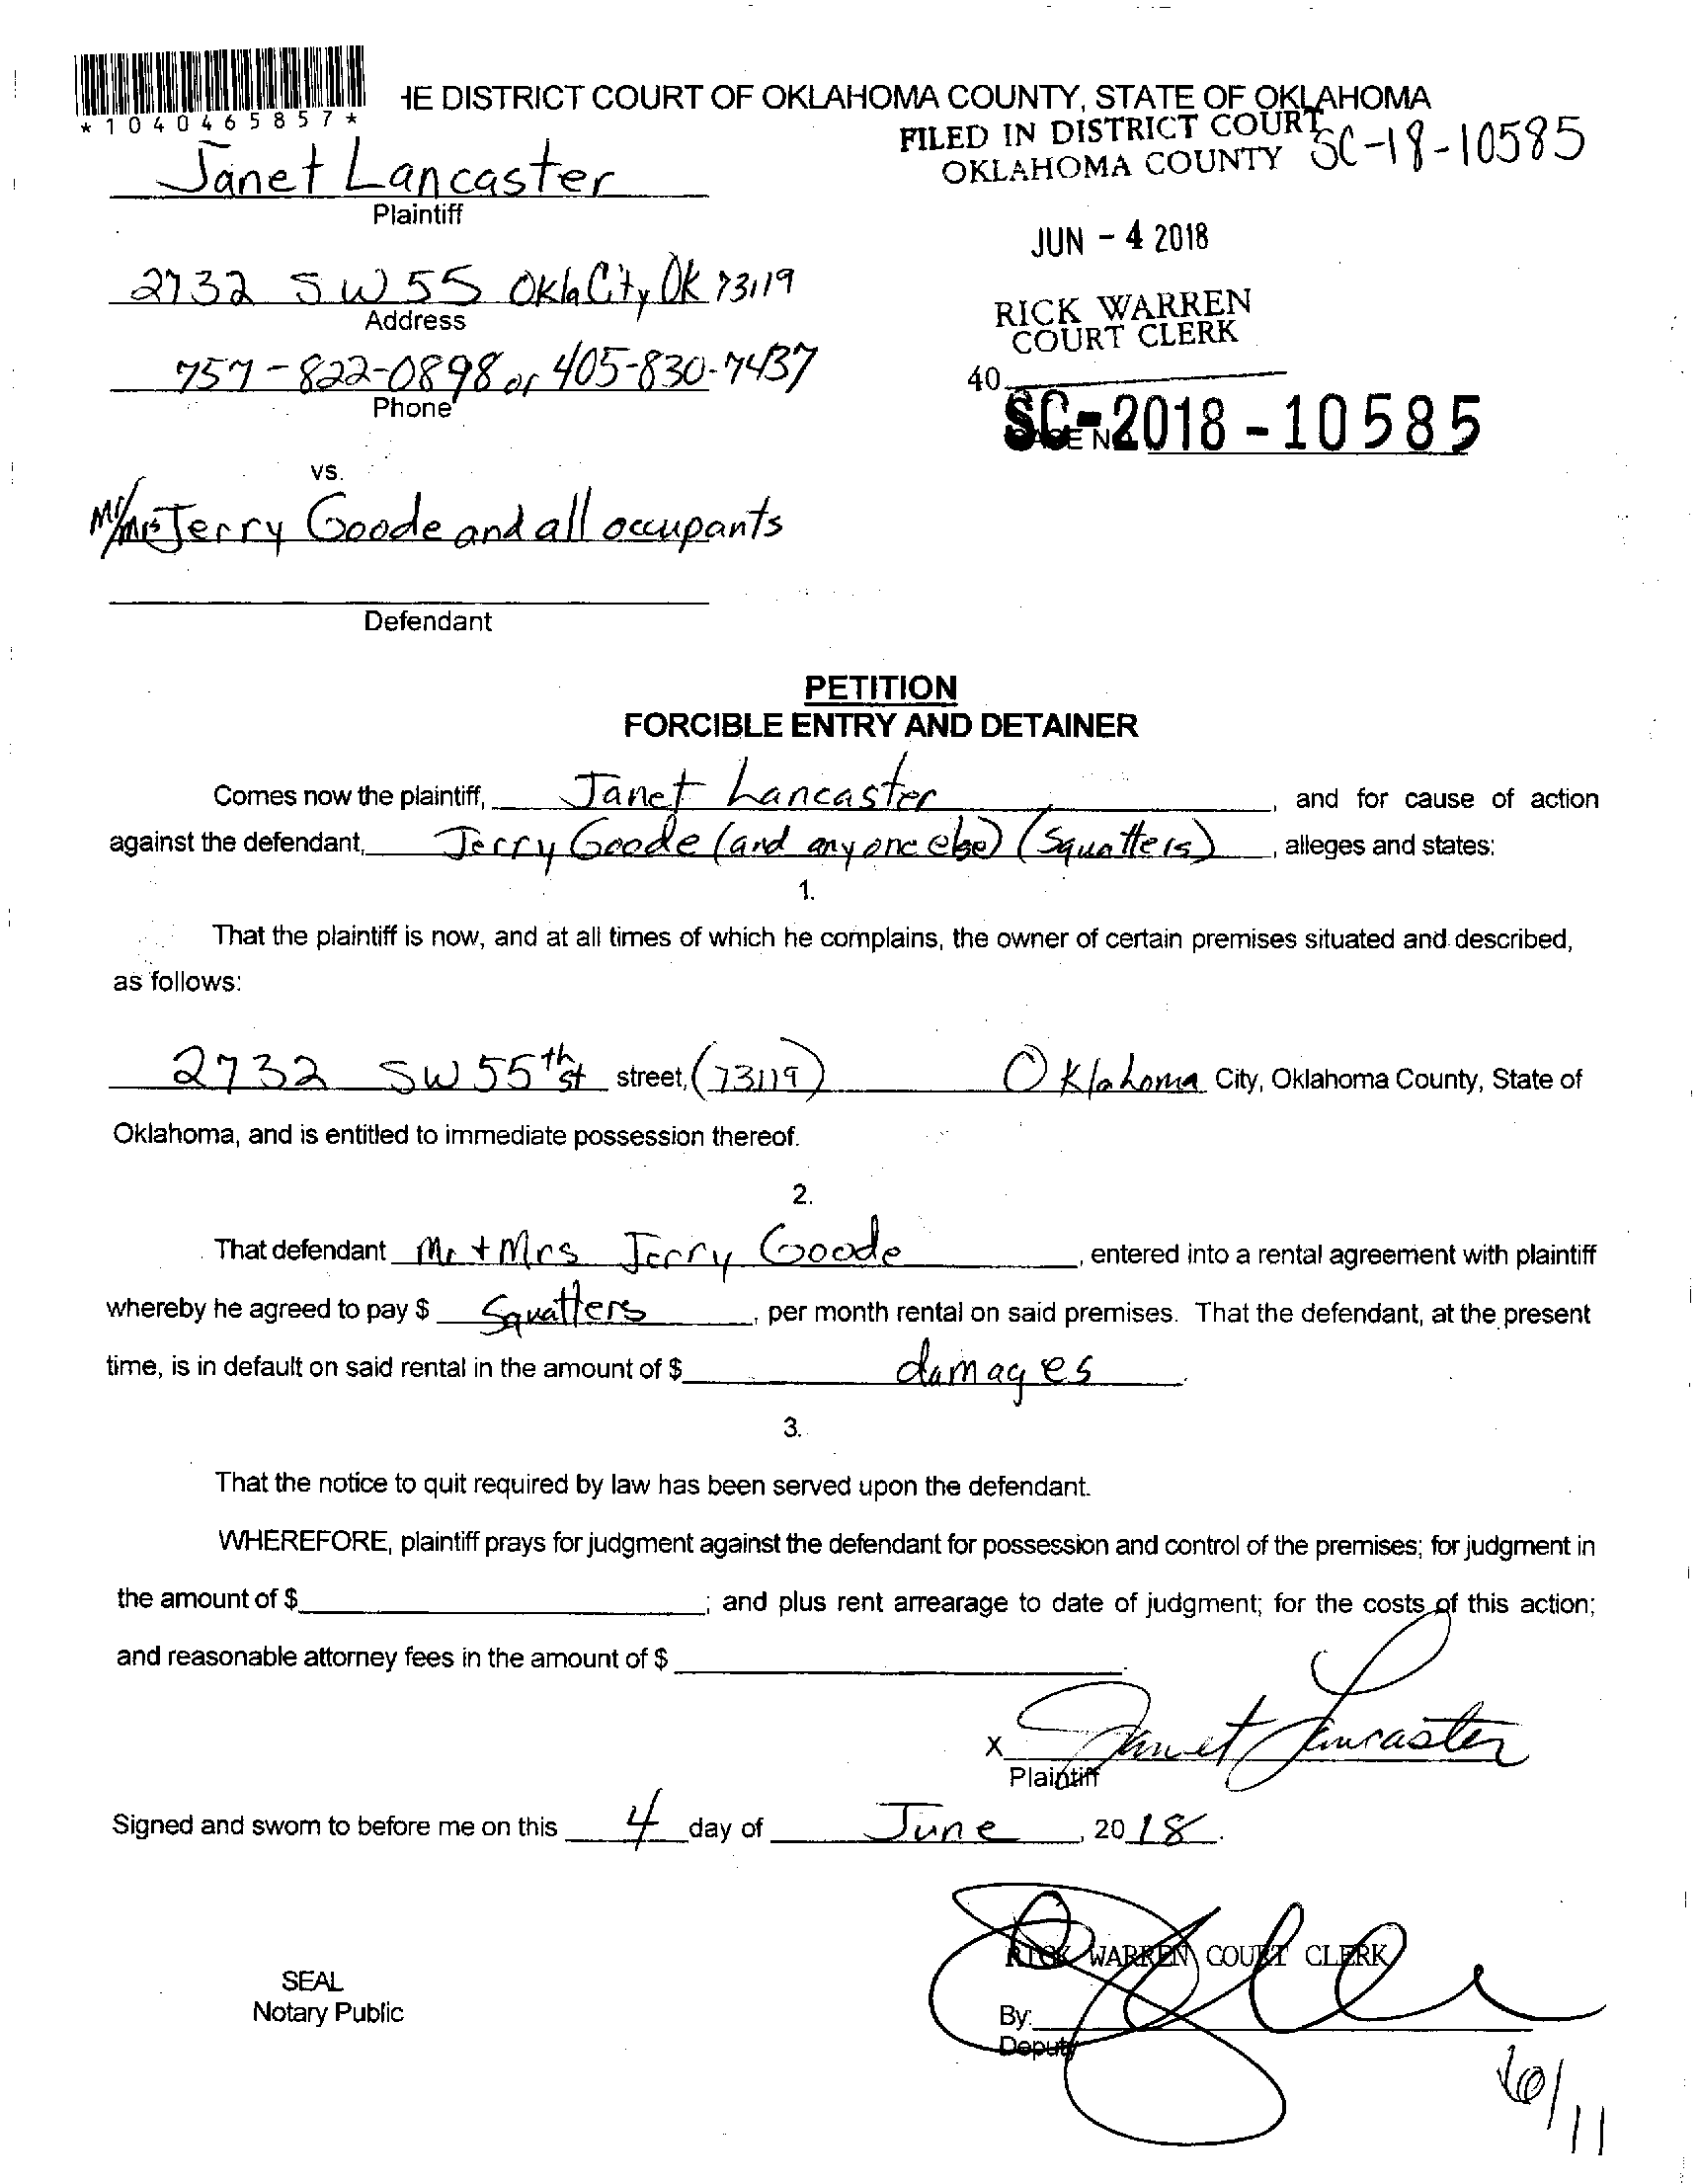 *1040465857*
HE DISTRICT COURT OF OKLAHOMA COUNTY, STATE OF OKLAHOMA
FILED IN DISTRICT COURT
OKLAHOMA COUNTY
SC-18-10585
Janet Lancaster
Plaintiff
JUN - 4 2018
2732 SW 55 Okla City, OK 73119
Address
RICK WARREN
COURT CLERK
757-822-0898 or 405-830-7437
Phone
40
SC-2018-10585
vs.
Mr/Mrs Jerry Goode and all occupants
Defendant
PETITION
FORCIBLE ENTRY AND DETAINER
Comes now the plaintiff, Janet Lancaster, and for cause of action
against the defendant, Jerry Goode (and anyone else) (Squatters), alleges and states:
1.
That the plaintiff is now, and at all times of which he complains, the owner of certain premises situated and described,
as follows:
2732 SW 55th st street, (73119) Oklahoma City, Oklahoma County, State of
Oklahoma, and is entitled to immediate possession thereof.
2.
That defendant Mr + Mrs Jerry Goode, entered into a rental agreement with plaintiff
whereby he agreed to pay $ Squatters, per month rental on said premises. That the defendant, at the present
time, is in default on said rental in the amount of $ damages.
3.
That the notice to quit required by law has been served upon the defendant.
WHEREFORE, plaintiff prays for judgment against the defendant for possession and control of the premises; for judgment in
the amount of $; and plus rent arrearage to date of judgment; for the costs of this action;
and reasonable attorney fees in the amount of $
X Janet Lancaster
Plaintiff
Signed and sworn to before me on this 4 day of June, 2018.
RICK WARREN COURT CLERK
SEAL
Notary Public
By:
Deputy
6/11